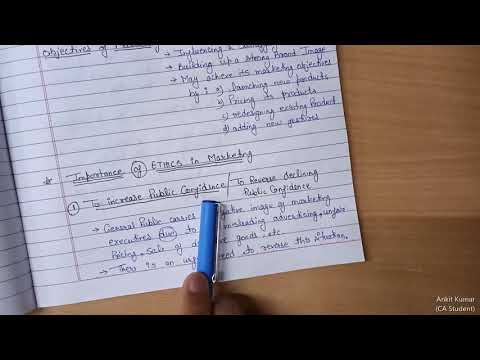 objectives of
→ Influencing &
→ Building up a strong Brand Image
→ May achieve its marketing objectives
by : a) launching new products
b) Pricing its products
c) redesigning existing Product
d) adding new features
★ Importance of ETHICS in Marketing
① To increase Public Confidence / To Reverse declining
Public Confidence
→ General Public carries image of marketing
executives (due) to misleading advertising, unfair
Pricing, sale of goods, etc.
→ There is an to reverse this situation.
Ankit Kumar
(CA Student)